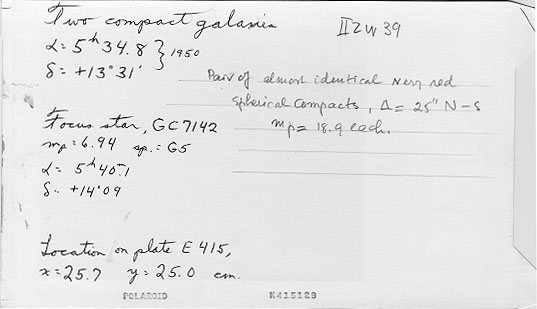 Two compact galaxies
α = 5ʰ 34.8 } 1950
δ = +13° 31'
II Zw 39
Pair of almost identical very red
spherical compacts, Δ = 25" N-S
mp = 18.9 each.
Focus star, GC 7142
mp = 6.94 sp. = G5
α = 5ʰ 40.1
δ = +14° 09
Location on plate E 415,
x = 25.7 y = 25.0 cm.
POLAROID K415128